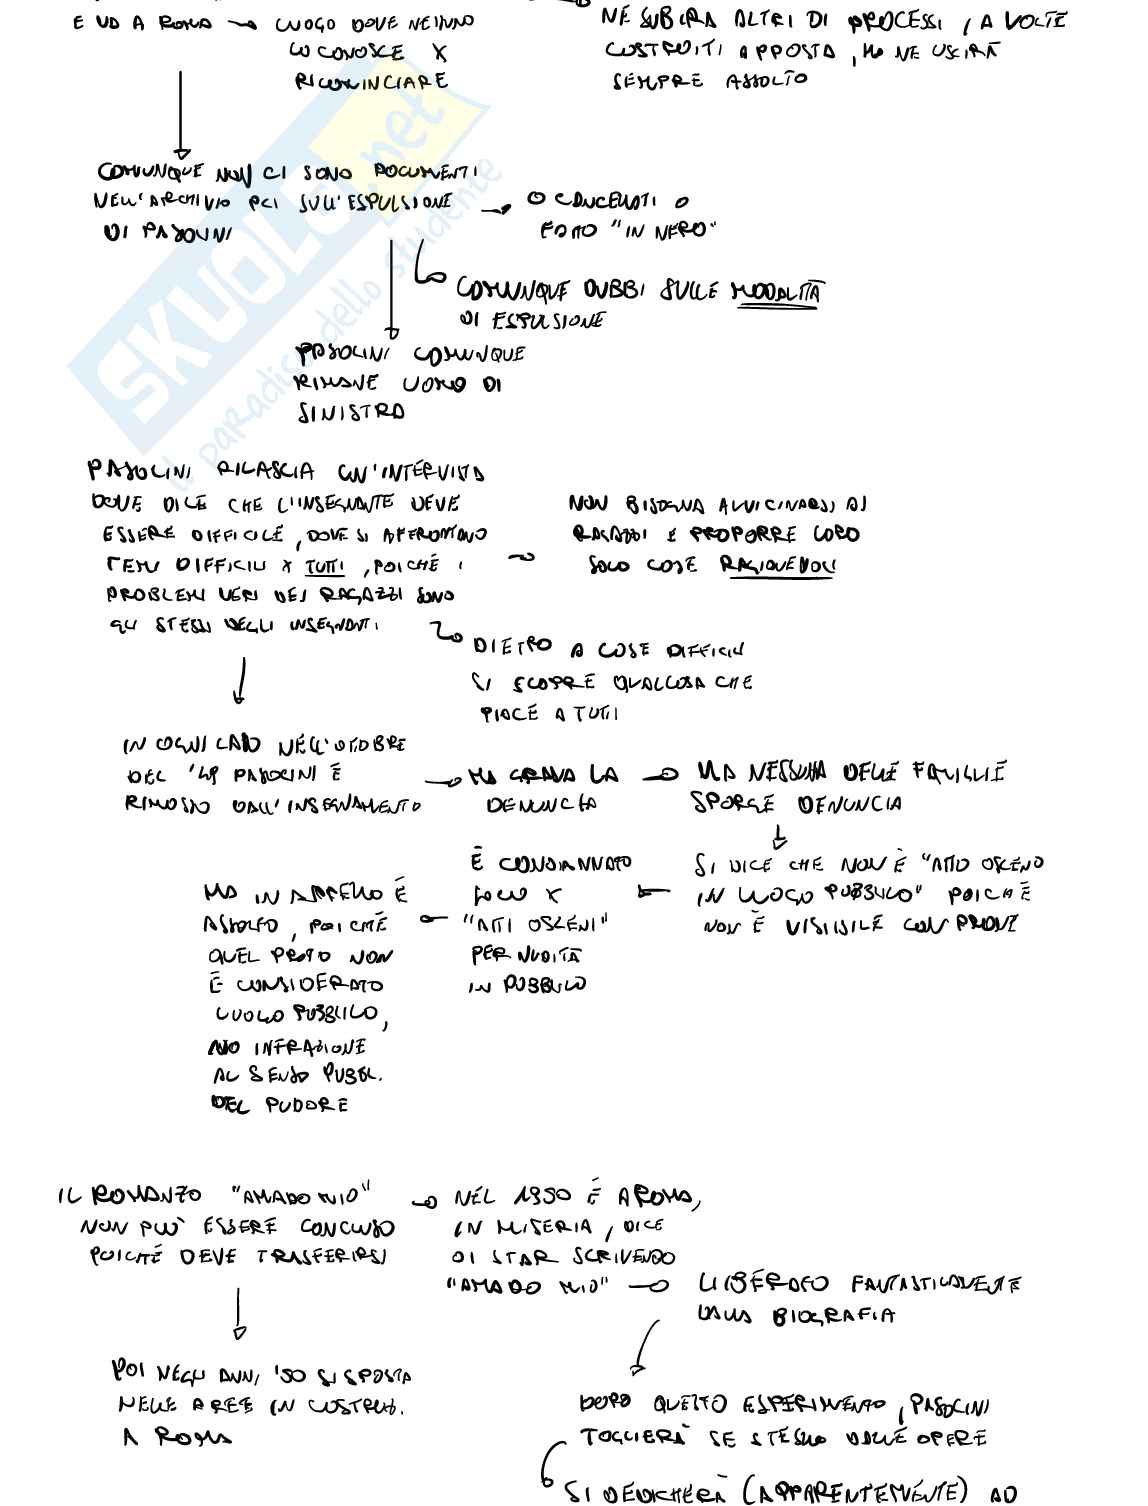 E VA A ROMA → LUOGO DOVE NESSUNO
LO CONOSCE X
RICOMINCIARE
NE SUBIRÀ ALTRI DI PROCESSI, A VOLTE
COSTRUITI APPOSTA, MA NE USCIRÀ
SEMPRE ASSOLTO
COMUNQUE NON CI SONO DOCUMENTI
NELL'ARCHIVIO PCI SULL'ESPULSIONE
DI PASOLINI
→ O CANCELLATI O
FATTO "IN NERO"
COMUNQUE DUBBI SULLE MODALITÀ
DI ESPULSIONE
PASOLINI COMUNQUE
RIMANE UOMO DI
SINISTRA
SKUOLA.net
il paradiso dello studente
PASOLINI RILASCIA UN'INTERVISTA
DOVE DICE CHE L'INSEGNANTE DEVE
ESSERE DIFFICILE, DOVE SI AFFRONTANO
TEMI DIFFICILI X TUTTI, POICHÉ I
PROBLEMI VERI DEI RAGAZZI SONO
GLI STESSI DEGLI INSEGNANTI
→ NON BISOGNA AVVICINARSI AI
RAGAZZI E PROPORRE LORO
SOLO COSE RAGIONEVOLI
DIETRO A COSE DIFFICILI
SI SCOPRE QUALCOSA CHE
PIACE A TUTTI
IN OGNI CASO NELL'OTTOBRE
DEL '49 PASOLINI È
RIMOSSO DALL'INSEGNAMENTO
→ MA GRAVA LA
DENUNCIA
→ MA NESSUNA DELLE FAMIGLIE
SPORGE DENUNCIA
SI DICE CHE NON È "ATTO OSCENO
IN LUOGO PUBBLICO" POICHÉ
NON È VISIBILE CON PROVE
È CONDANNATO
X
"ATTI OSCENI"
PER NUDITÀ
IN PUBBLICO
MA IN APPELLO È
ASSOLTO, POICHÉ
QUEL PRATO NON
È CONSIDERATO
LUOGO PUBBLICO,
NO INFRAZIONE
AL SENSO PUBBL.
DEL PUDORE
IL ROMANZO "AMADO MIO"
NON PUÒ ESSERE CONCLUSO
POICHÉ DEVE TRASFERIRSI
→ NEL 1950 È A ROMA,
IN MISERIA, DICE
DI STAR SCRIVENDO
"AMADO MIO" →
FANTASTICAMENTE
BIOGRAFIA
POI NEGLI ANNI '50 SI SPOSTA
NELLE AREE IN COSTRUZ.
A ROMA
DOPO QUESTO ESPERIMENTO, PASOLINI
TOGLIERÀ SE STESSO DALLE OPERE
SI DEDICHERÀ (APPARENTEMENTE) AD